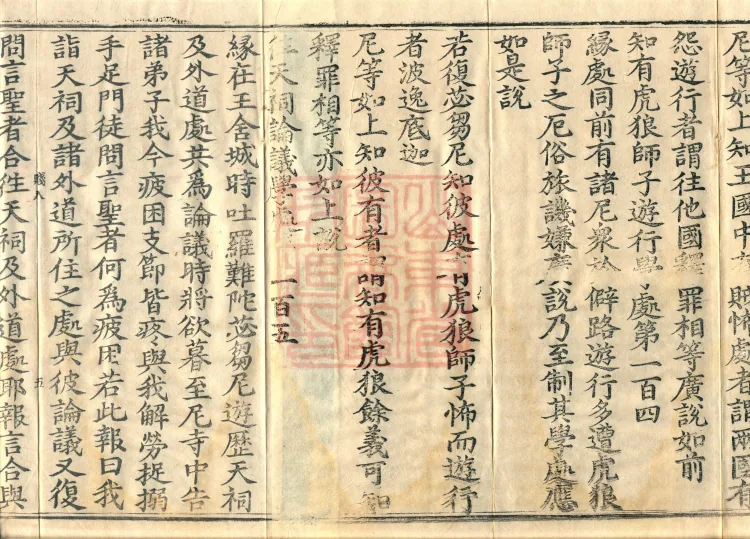 尼等如上知王國中有賊怖處者謂兩國有
怨遊行者謂往他國釋罪相等廣說如前
知有虎狼師子遊行學處第一百四
緣處同前有諸尼衆於僻路遊行多遭虎狼
師子之厄俗旅譏嫌廣說乃至制其學處應
如是說
若復苾芻尼知彼處有虎狼師子怖而遊行
者波逸底迦
尼等如上知彼有者謂知有虎狼餘義可知
釋罪相等亦如上說
往天祠論議學處 一百五
緣在王舍城時吐羅難陀苾芻尼遊歷天祠
及外道處共爲論議時將欲暮至尼寺中告
諸弟子我今疲困支節皆疼與我解勞捉搦
手足門徒問言聖者何爲疲困若此報曰我
詣天祠及諸外道所住之處與彼論議又復
職八 五
問言聖者合往天祠及外道處耶報言合與